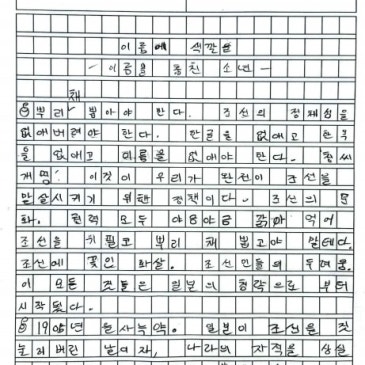 이름에 색깔을
- 이름을 훔친 소년 -
채
뿌리 뽑아야 한다. 조선의 정체성을
없애버려야 한다. 한글을 없애고 한복
을 없애고 이름을 없애야 한다. '창씨
개명' 이것이 우리가 완전이 조선을
말살시키기 위한 정책이다. 조선의 문
화. 권력 모두 야금야금 갉아 먹어
조선을 뿌리 채 뽑고야 말테다.
조선에 꽂힌 화살. 조선인들의 두려움.
이 모든 것들은 일본의 침략으로 부터
시작됐다.
년 을사늑약. 일본이 조선을 짓
눌러버린 날이자, 나라의 자적을 상실